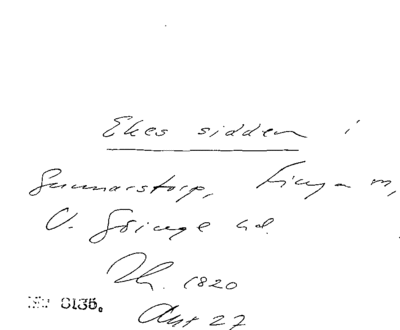 Ekes sidden i
Gunnarstorp, Finja m,
V. Göinge hd.
Dh. 1820
Ant 27
0135.